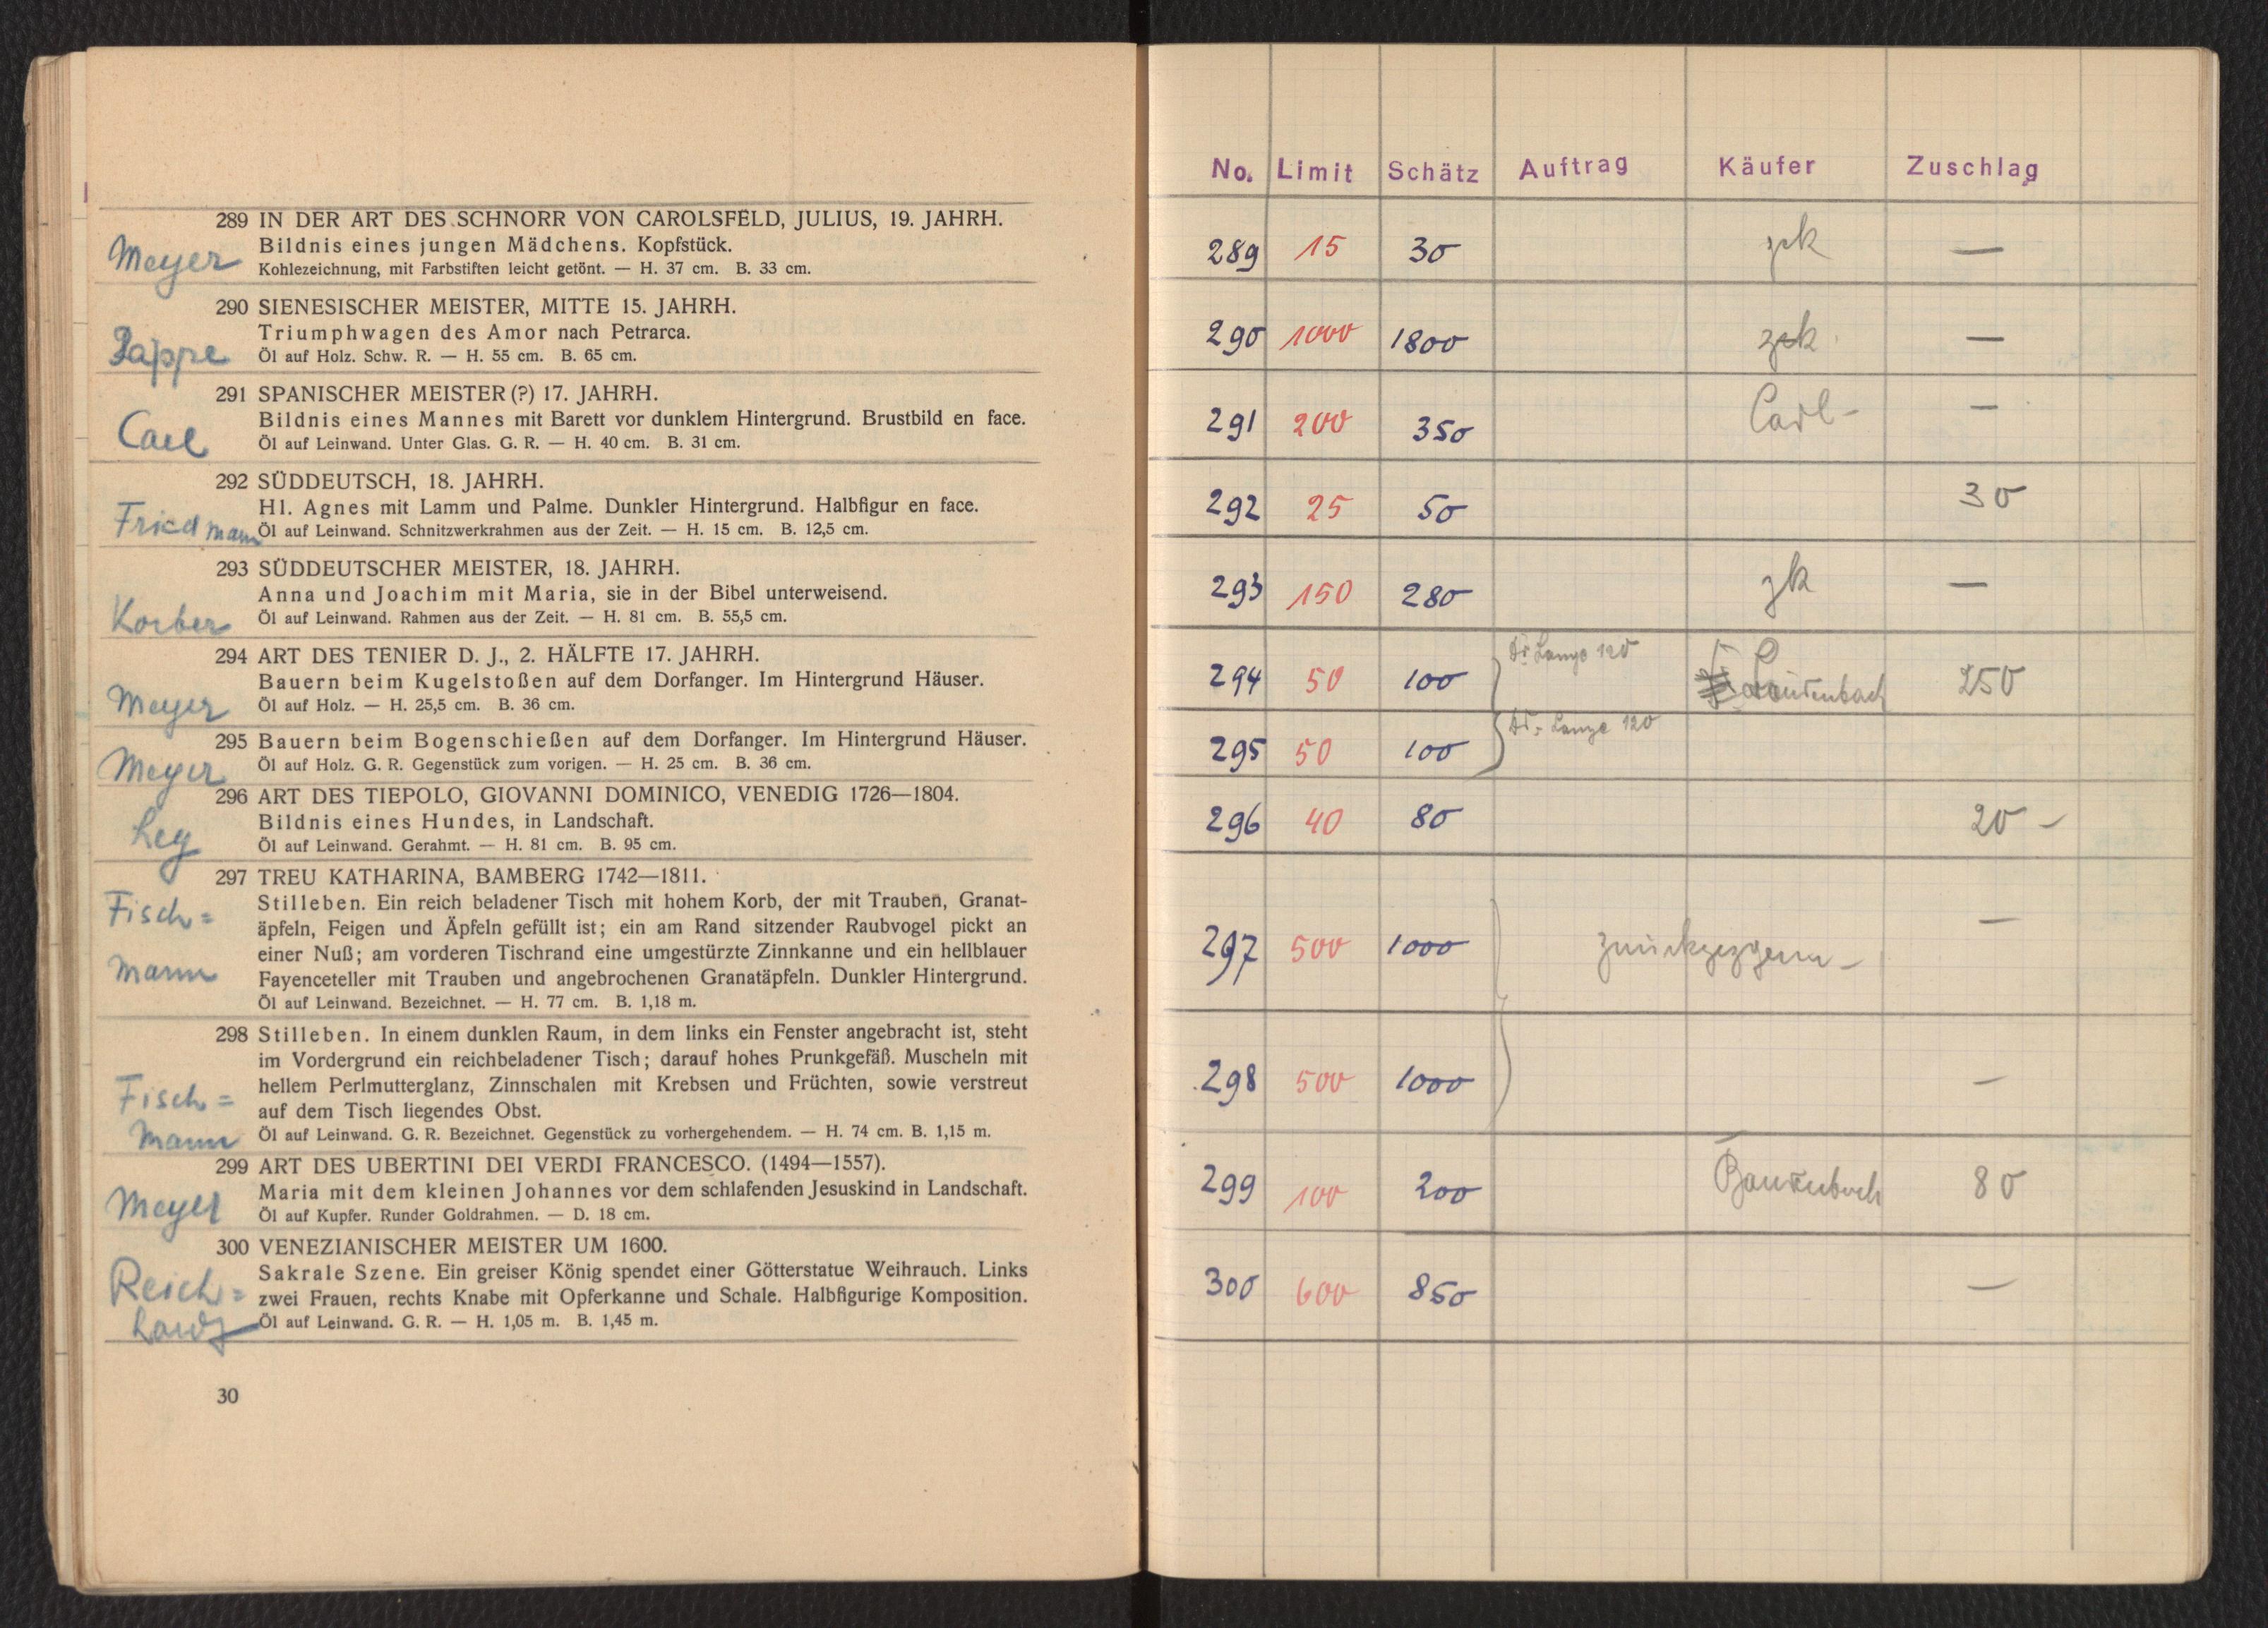 289 IN DER ART DES SCHNORR VON CAROLSFELD, JULIUS, 19. JAHRH.
Meyer Bildnis eines jungen Mädchens. Kopfstück.
Kohlezeichnung, mit Farbstiften leicht getönt. — H. 37 cm. B. 33 cm.
290 SIENESISCHER MEISTER, MITTE 15. JAHRH.
Triumphwagen des Amor nach Petrarca.
Pappe Öl auf Holz. Schw. R. — H. 55 cm. B. 65 cm.
291 SPANISCHER MEISTER (?) 17. JAHRH.
Bildnis eines Mannes mit Barett vor dunklem Hintergrund. Brustbild en face.
Carl Öl auf Leinwand. Unter Glas. G. R. — H. 40 cm. B. 31 cm.
292 SÜDDEUTSCH, 18. JAHRH.
Hl. Agnes mit Lamm und Palme. Dunkler Hintergrund. Halbfigur en face.
Friedmann Öl auf Leinwand. Schnitzwerkrahmen aus der Zeit. — H. 15 cm. B. 12,5 cm.
293 SÜDDEUTSCHER MEISTER, 18. JAHRH.
Anna und Joachim mit Maria, sie in der Bibel unterweisend.
Korber Öl auf Leinwand. Rahmen aus der Zeit. — H. 81 cm. B. 55,5 cm.
294 ART DES TENIER D. J., 2. HÄLFTE 17. JAHRH.
Bauern beim Kugelstoßen auf dem Dorfanger. Im Hintergrund Häuser.
Meyer Öl auf Holz. — H. 25,5 cm. B. 36 cm.
295 Bauern beim Bogenschießen auf dem Dorfanger. Im Hintergrund Häuser.
Meyer Öl auf Holz. G. R. Gegenstück zum vorigen. — H. 25 cm. B. 36 cm.
296 ART DES TIEPOLO, GIOVANNI DOMINICO, VENEDIG 1726—1804.
Bildnis eines Hundes, in Landschaft.
Ley Öl auf Leinwand. Gerahmt. — H. 81 cm. B. 95 cm.
297 TREU KATHARINA, BAMBERG 1742—1811.
Fisch= Stilleben. Ein reich beladener Tisch mit hohem Korb, der mit Trauben, Granat-
äpfeln, Feigen und Äpfeln gefüllt ist; ein am Rand sitzender Raubvogel pickt an
einer Nuß; am vorderen Tischrand eine umgestürzte Zinnkanne und ein hellblauer
mann Fayenceteller mit Trauben und angebrochenen Granatäpfeln. Dunkler Hintergrund.
Öl auf Leinwand. Bezeichnet. — H. 77 cm. B. 1,18 m.
298 Stilleben. In einem dunklen Raum, in dem links ein Fenster angebracht ist, steht
im Vordergrund ein reichbeladener Tisch; darauf hohes Prunkgefäß. Muscheln mit
hellem Perlmutterglanz, Zinnschalen mit Krebsen und Früchten, sowie verstreut
Fisch= auf dem Tisch liegendes Obst.
mann Öl auf Leinwand. G. R. Bezeichnet. Gegenstück zu vorhergehendem. — H. 74 cm. B. 1,15 m.
299 ART DES UBERTINI DEI VERDI FRANCESCO. (1494—1557).
Maria mit dem kleinen Johannes vor dem schlafenden Jesuskind in Landschaft.
Meyer Öl auf Kupfer. Runder Goldrahmen. — D. 18 cm.
300 VENEZIANISCHER MEISTER UM 1600.
Sakrale Szene. Ein greiser König spendet einer Götterstatue Weihrauch. Links
Reich= zwei Frauen, rechts Knabe mit Opferkanne und Schale. Halbfigurige Komposition.
Öl auf Leinwand. G. R. — H. 1,05 m. B. 1,45 m.
30
No. Limit Schätz Auftrag Käufer Zuschlag
289 15 30 zrk —
290 1000 1800 zrk —
291 200 350 Carl — —
292 25 50 30
293 150 280 zk —
294 50 100 Dr. Lange 120 Lautenbach 250
295 50 100 Dr. Lange 120
296 40 80 20 —
297 500 1000 zurückgezogen — —
298 500 1000 —
299 100 200 80
300 600 850 —